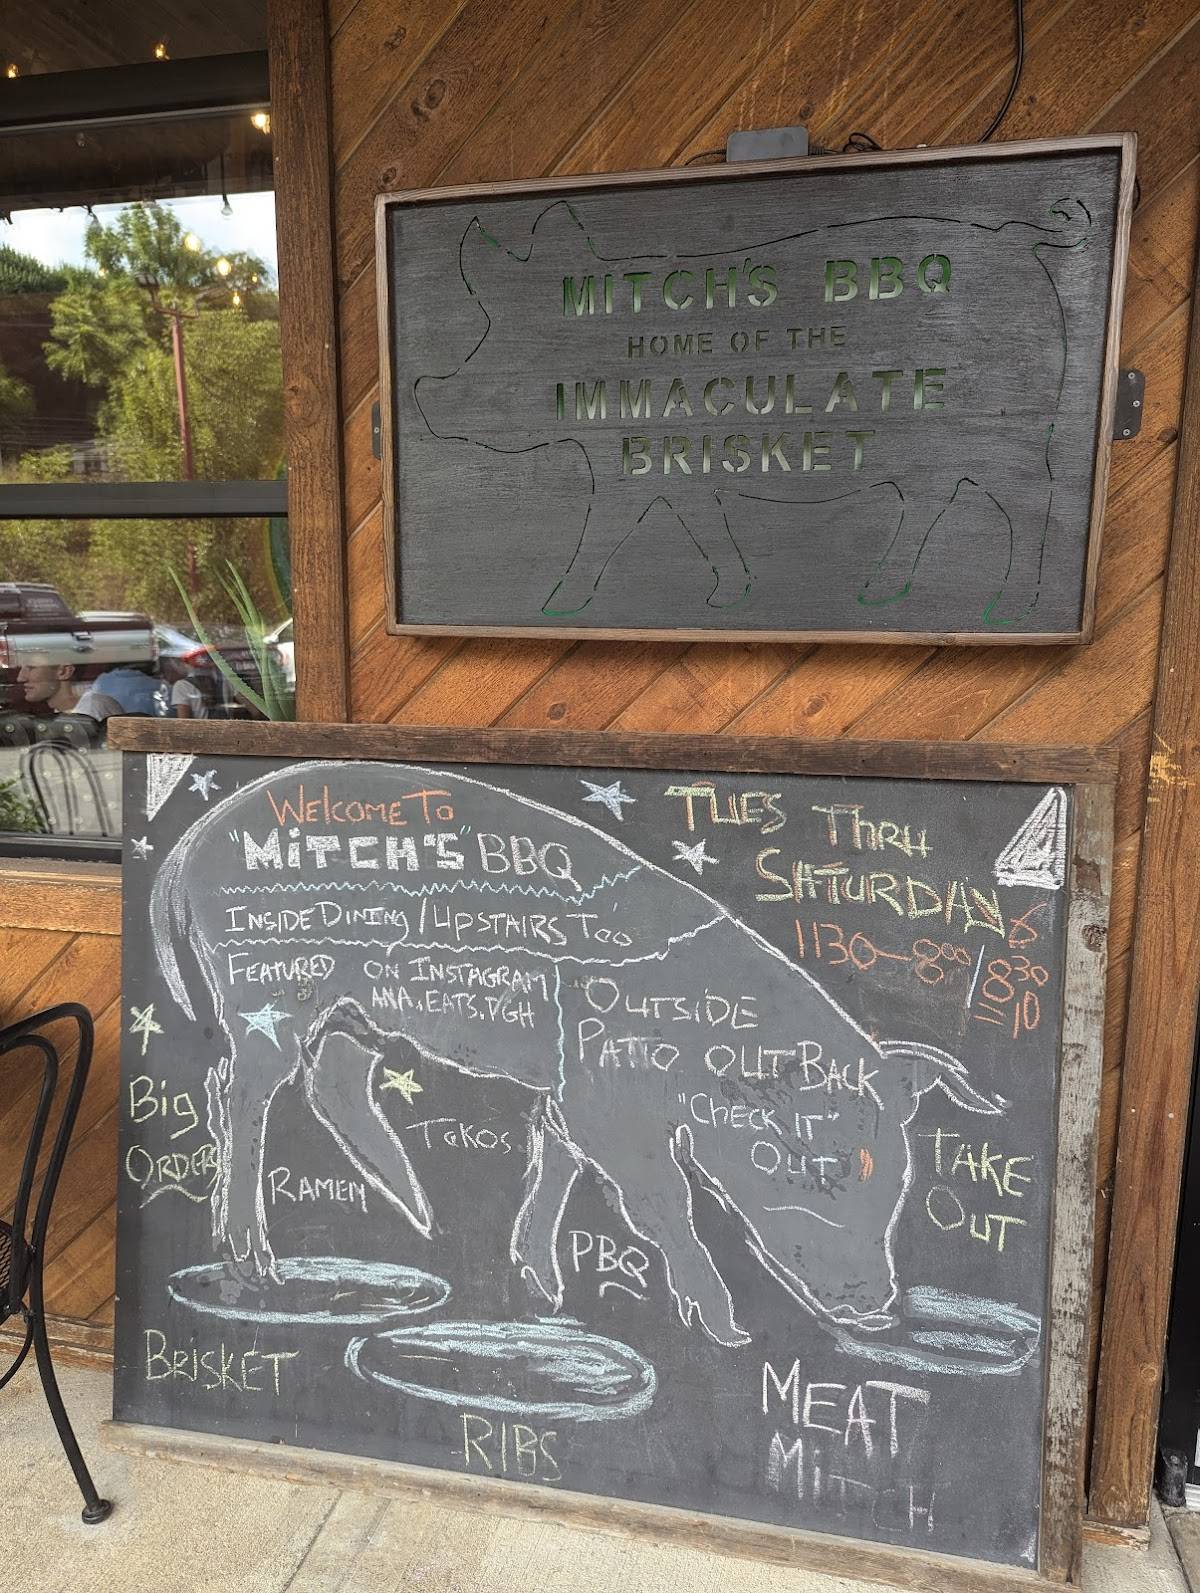 MITCH'S BBQ
HOME OF THE
IMMACULATE
BRISKET
WELCOME TO
"MiTCH'S" BBQ
INSIDE DINING / UPSTAIRS TOO
FEATURED ON INSTAGRAM
ANA.EATS.PGH
OUTSIDE
PATIO OUT BACK
"CHECK IT"
OUT
TUES THRU
SATURDAY
1130-800/830
Big
ORDERS
RAMEN
TAKOS
PBQ
TAKE
OUT
BRISKET
RIBS
MEAT
MITCH